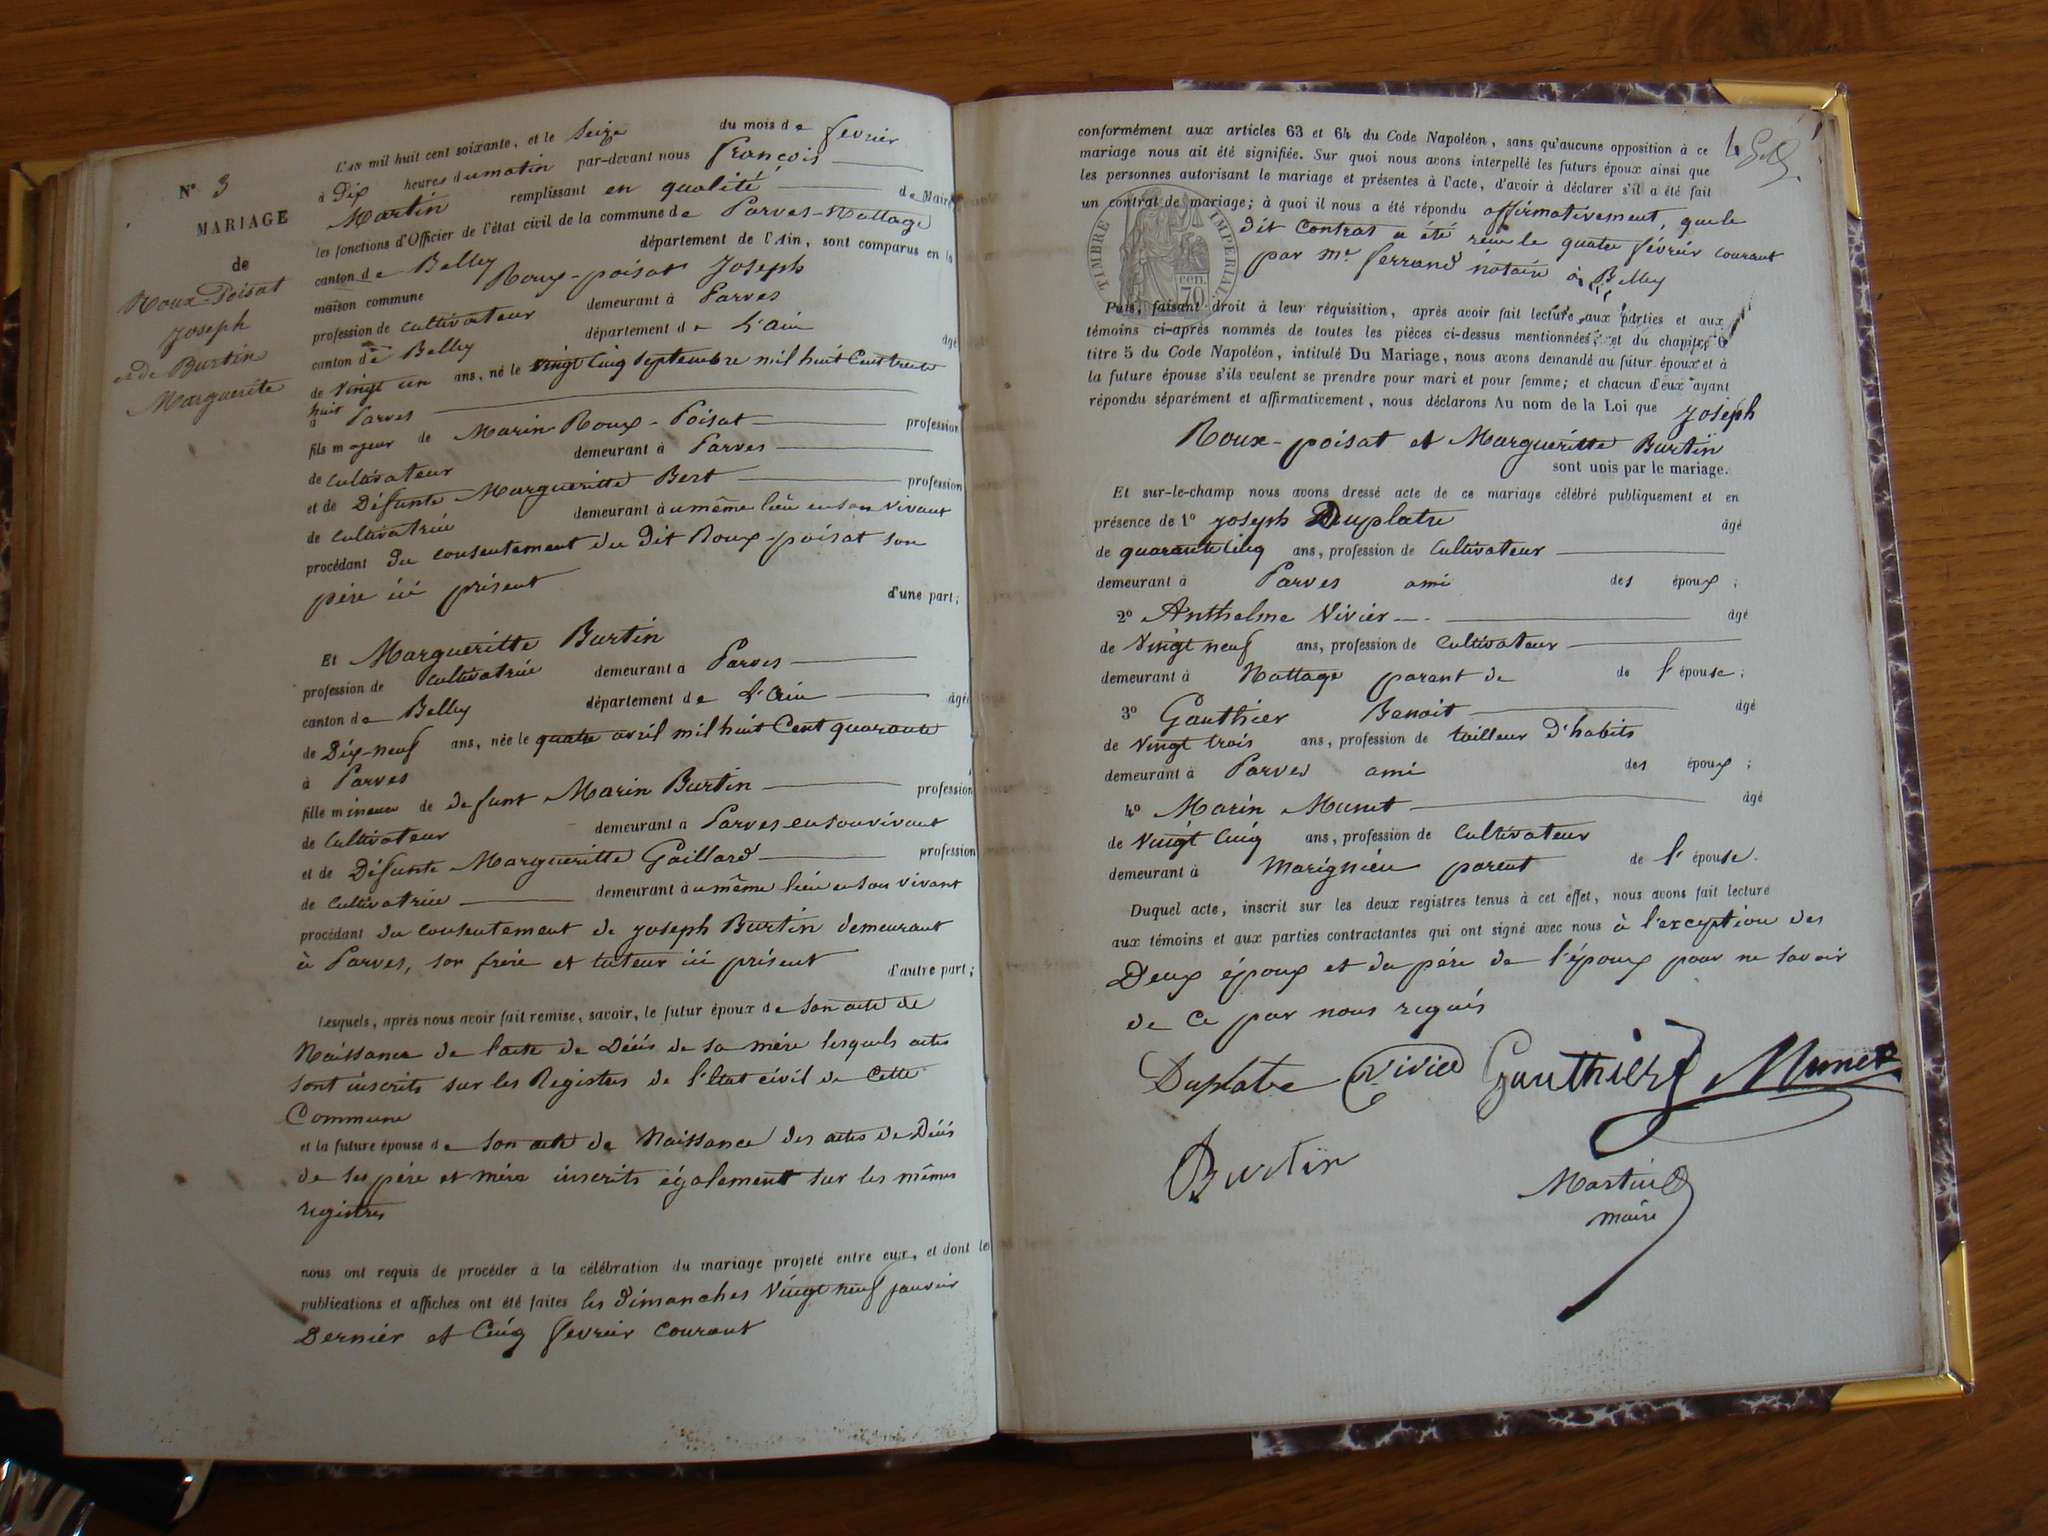 N° 3
MARIAGE
de
Roux-Poisat
Joseph
et de Burtin
Marguerite
L'an mil huit cent soixante, et le Seize du mois de fevrier
à Dix heures du matin par-devant nous François
Martin remplissant en qualité de Maire
les fonctions d'Officier de l'état civil de la commune de Parves-Nattage
canton de Belley département de l'Ain, sont comparus en la
maison commune Roux-poisat Joseph
profession de cultivateur demeurant à Parves
canton de Belley département de L'ain âgé
de Vingt un ans, né le vingt Cinq Septembre mil huit Cent trente
huit
à Parves
fils majeur de Marin Roux-Poisat profession
de cultivateur demeurant à Parves
et de Défunte Margueritte Bert profession
de cultivatrice demeurant à u même lieu en son vivant
procédant du consentement du dit Roux-poisat son
père ici présent d'une part;
Et Margueritte Burtin
profession de cultivatrice demeurant à Parves
canton de Belley département de L'Ain âgée
de Dix-neuf ans, née le quatre avril mil huit Cent quarante
à Parves
fille mineure de defunt Marin Burtin profession
de Cultivateur demeurant à Parves en son vivant
et de Défunte Margueritte Gaillard profession
de Cultivatrice demeurant à u même lieu en son vivant
procédant du consentement de joseph Burtin demeurant
à Parves, son frère et tuteur ici présent d'autre part;
Lesquels, après nous avoir fait remise, savoir, le futur époux de Son acte de
Naissance de l'acte de Décès de sa mère lesquels actes
sont inscrits sur les Registres de l'Etat civil de Cette
Commune
et la future épouse de Son acte de Naissance des actes de Décès
de ses père et mère inscrits également sur les mêmes
registres
nous ont requis de procéder à la célébration du mariage projeté entre eux, et dont les
publications et affiches ont été faites les Dimanches Vingt neuf janvier
Dernier et Cinq fevrier courant
conformément aux articles 63 et 64 du Code Napoléon, sans qu'aucune opposition à ce
mariage nous ait été signifiée. Sur quoi nous avons interpellé les futurs époux ainsi que
les personnes autorisant le mariage et présentes à l'acte, d'avoir à déclarer s'il a été fait
un contrat de mariage; à quoi il nous a été répondu affirmativement, que le
dit Contrat a été reçu le quatre février courant
par Me ferrand notaire à Belley
TIMBRE IMPERIAL
70 cen.
Puis, faisant droit à leur réquisition, après avoir fait lecture aux parties et aux
témoins ci-après nommés de toutes les pièces ci-dessus mentionnées et du chapitre 6
titre 5 du Code Napoléon, intitulé Du Mariage, nous avons demandé au futur époux et à
la future épouse s'ils veulent se prendre pour mari et pour femme; et chacun d'eux ayant
répondu séparément et affirmativement, nous déclarons Au nom de la Loi que Joseph
Roux-poisat et Margueritte Burtin
sont unis par le mariage.
Et sur-le-champ nous avons dressé acte de ce mariage célébré publiquement et en
présence de 1° joseph Duplatre âgé
de quarante Cinq ans, profession de Cultivateur
demeurant à Parves ami des époux;
2° Anthelme Vivier âgé
de Vingt neuf ans, profession de Cultivateur
demeurant à Nattage parent de de l'épouse;
3° Gauthier Benoit âgé
de Vingt trois ans, profession de tailleur d'habits
demeurant à Parves ami des époux;
4° Marin Munet âgé
de Vingt Cinq ans, profession de Cultivateur
demeurant à Marignieu parent de l'épouse.
Duquel acte, inscrit sur les deux registres tenus à cet effet, nous avons fait lecture
aux témoins et aux parties contractantes qui ont signé avec nous à l'exception des
Deux époux et du père de l'époux pour ne savoir
de Ce par nous requis
Duplatre Vivier Gauthier Munet
Burtin
Martin
maire